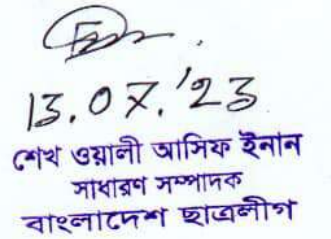 13.07.'23
শেখ ওয়ালী আসিফ ইনান
সাধারণ সম্পাদক
বাংলাদেশ ছাত্রলীগ